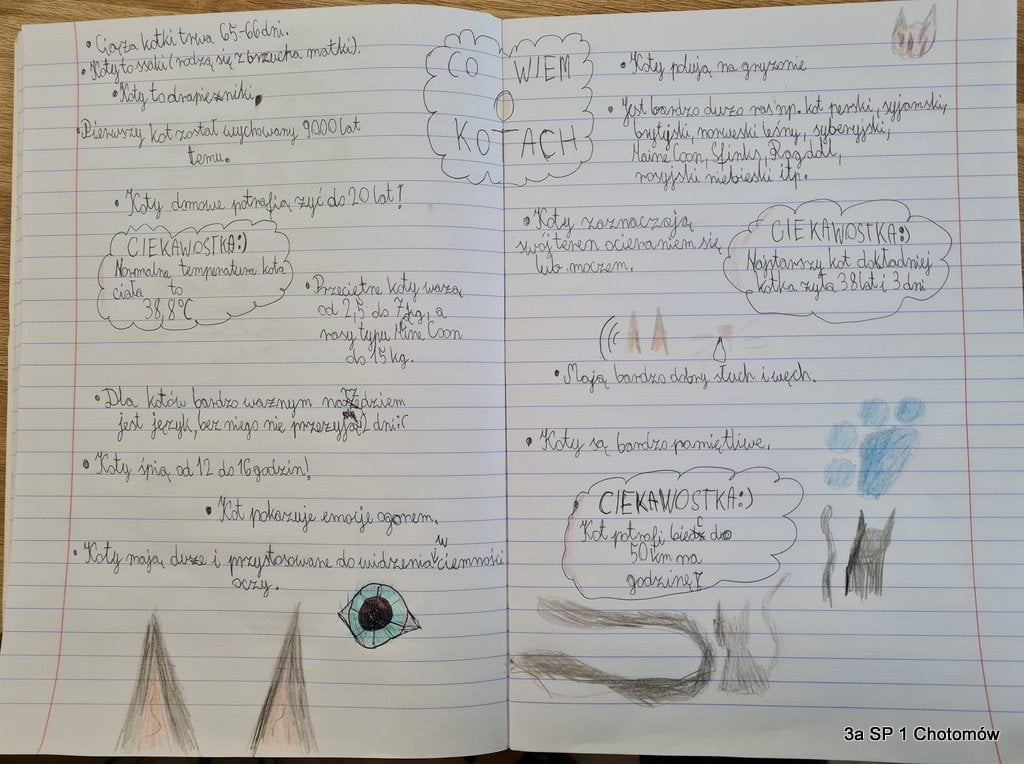 CO WIEM
O
KOTACH
• Ciąża kotki trwa 65-66 dni.
• Koty to ssaki (rodzą się z brzucha matki).
• Koty to drapieżniki.
• Pierwszy kot został wychowany 9000 lat
temu.
• Koty domowe potrafią żyć do 20 lat!
CIEKAWOSTKA:)
Normalna temperatura kota
ciała to
38,8°C
• Przeciętne koty ważą
od 2,5 do 7 kg, a
rasy typu Maine Coon
do 15 kg.
• Dla kotów bardzo ważnym narzędziem
jest język, bez niego nie przeżyją 2 dni:(
• Koty śpią od 12 do 16 godzin!
• Kot pokazuje emocje ogonem.
• Koty mają duże i przystosowane do widzenia w ciemności
oczy.
• Koty polują na gryzonie
• Jest bardzo dużo ras np. kot perski, syjamski,
brytyjski, norweski leśny, syberyjski,
Maine Coon, Sfinks, Ragdoll,
rosyjski niebieski itp.
• Koty zaznaczają
swój teren ocieraniem się
lub moczem.
CIEKAWOSTKA:)
Najstarszy kot dokładniej
kotka żyła 38 lat i 3 dni
• Mają bardzo dobry słuch i węch.
• Koty są bardzo pamiętliwe.
CIEKAWOSTKA:)
Kot potrafi biec do
50 km na
godzinę!
3a SP 1 Chotomów